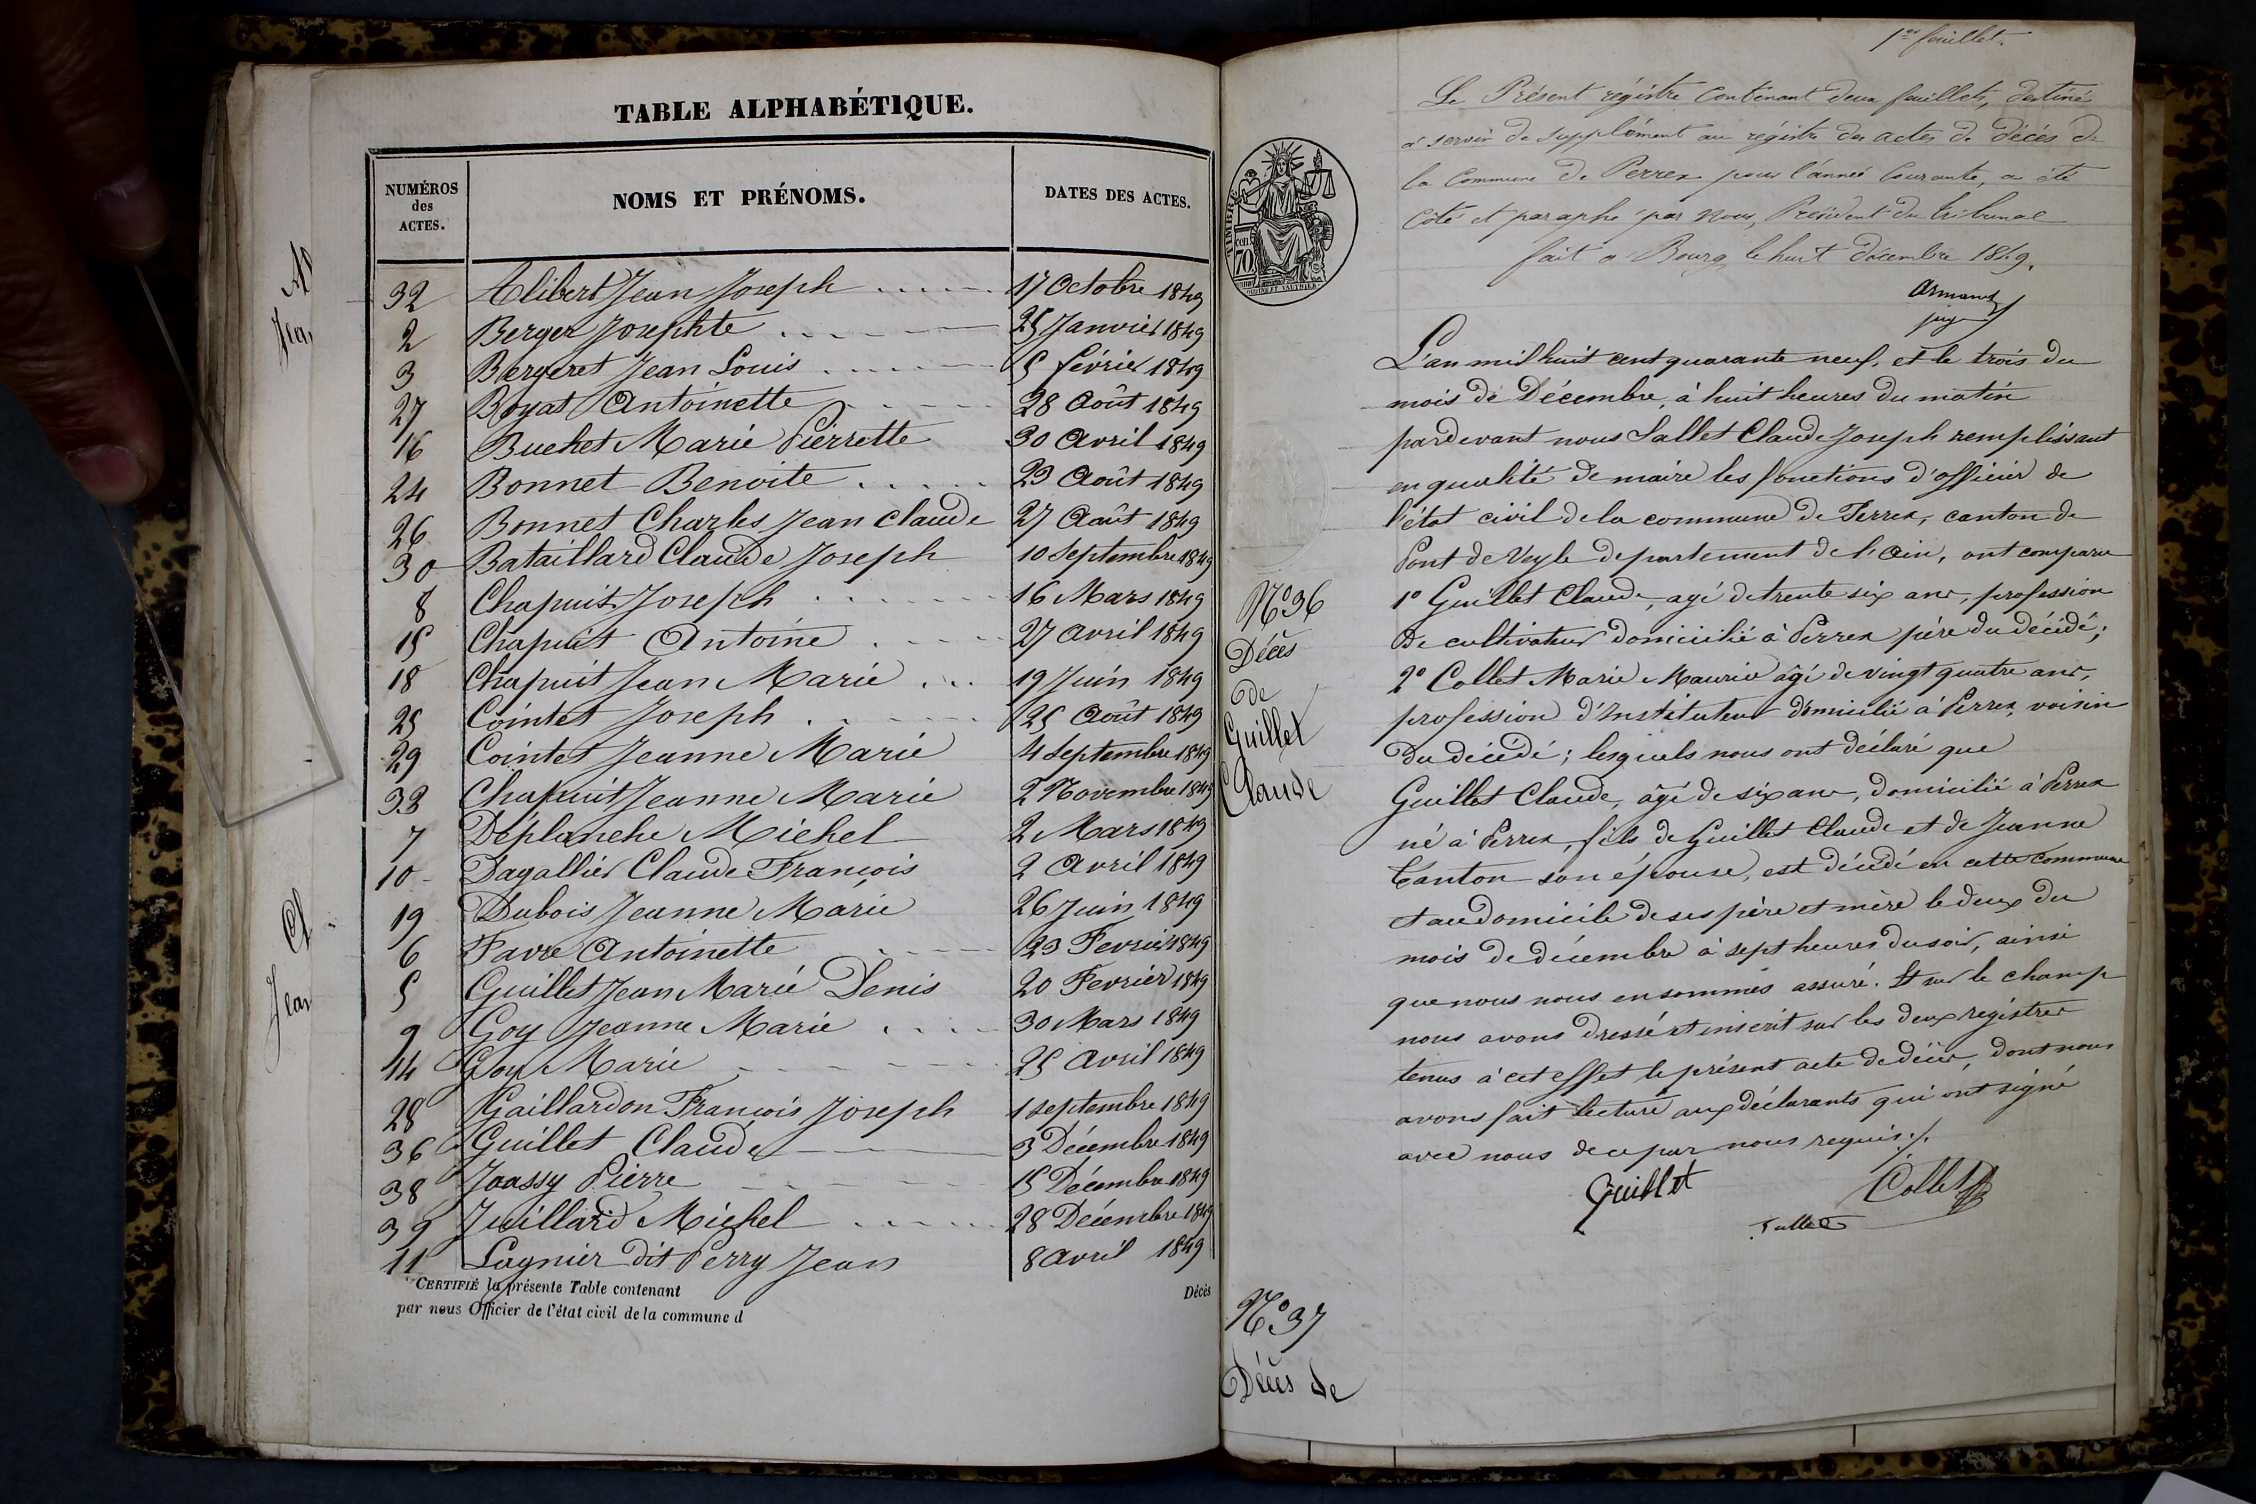 TABLE ALPHABÉTIQUE.
NUMÉROS des ACTES.
NOMS ET PRÉNOMS.
DATES DES ACTES.
32 Alibert Jean Joseph 17 Octobre 1849
2 Berger Josephte 25 Janvier 1849
3 Bergeret Jean Louis 5 février 1849
27 Boyat Antoinette 28 Août 1849
16 Buchet Marie Pierrette 30 Avril 1849
24 Bonnet Benoite 23 Août 1849
26 Bonnet Charles Jean Claude 27 Août 1849
30 Bataillard Claude Joseph 10 Septembre 1849
8 Chapuit Joseph 16 Mars 1849
15 Chapuit Antoine 27 Avril 1849
18 Chapuit Jean Marie 19 Juin 1849
25 Cointet Joseph 25 Août 1849
29 Cointet Jeanne Marie 4 Septembre 1849
33 Chapuit Jeanne Marie 2 Novembre 1849
7 Déplanche Michel 2 Mars 1849
10 Dagallier Claude François 2 Avril 1849
19 Dubois Jeanne Marie 26 Juin 1849
6 Favre Antoinette 23 Fevrier 1849
5 Guillet Jean Marie Denis 20 Fevrier 1849
9 Goy Jeanne Marie 30 Mars 1849
14 Goy Marie 25 Avril 1849
28 Gaillardon François Joseph 1 Septembre 1849
36 Guillet Claude 3 Décembre 1849
38 Joassy Pierre 15 Décembre 1849
39 Juillard Michel 28 Décembre 1849
11 Lagnier dit Perry Jean 8 Avril 1849
CERTIFIÉ la présente Table contenant Décès
par nous Officier de l'état civil de la commune d
1er feuillet.
Le Présent régistre Contenant deux feuillets, destiné
à servir de Supplément au régistre des actes de décès de
la Commune de Perrex pour l'année Courante, a été
Côté et paraphé par Nous, Président du tribunal
fait à Bourg le huit décembre 1849.
Armand
juge
TIMBRE
70 cen
L'an mil huit cent quarante neuf, et le trois du
mois de Décembre, à huit heures du matin
pardevant nous Sallet Claude Joseph remplissant
en qualité de maire les fonctions d'officier de
l'état civil de la commune de Perrex, canton de
Pont de Veyle departement de l'Ain, ont comparu
1º Guillet Claude, agé de trente six ans, profession
de cultivateur domicilié à Perrex père du décédé;
2º Collet Marie Maurice âgé de vingt quatre ans,
profession d'Instituteur domicilié à Perrex, voisin
du décédé; lesquels nous ont déclaré que
Guillet Claude, âgé de six ans, domicilié à Perrex
né à Perrex, fils de Guillet Claude et de Jeanne
Canton son épouse, est décédé en cette commune
et au domicile de ses père et mère le deux du
mois de décembre à sept heures du soir, ainsi
que nous nous en sommes assuré. Et sur le champ
nous avons dressé et inscrit sur les deux régistres
tenus à cet effet le présent acte de décès, dont nous
avons fait lecture aux déclarants qui ont signé
avec nous de ce par nous requis./.
Guillet Collet
Sallet
Nº 36
Décès
de
Guillet
Claude
Nº 37
Décès de